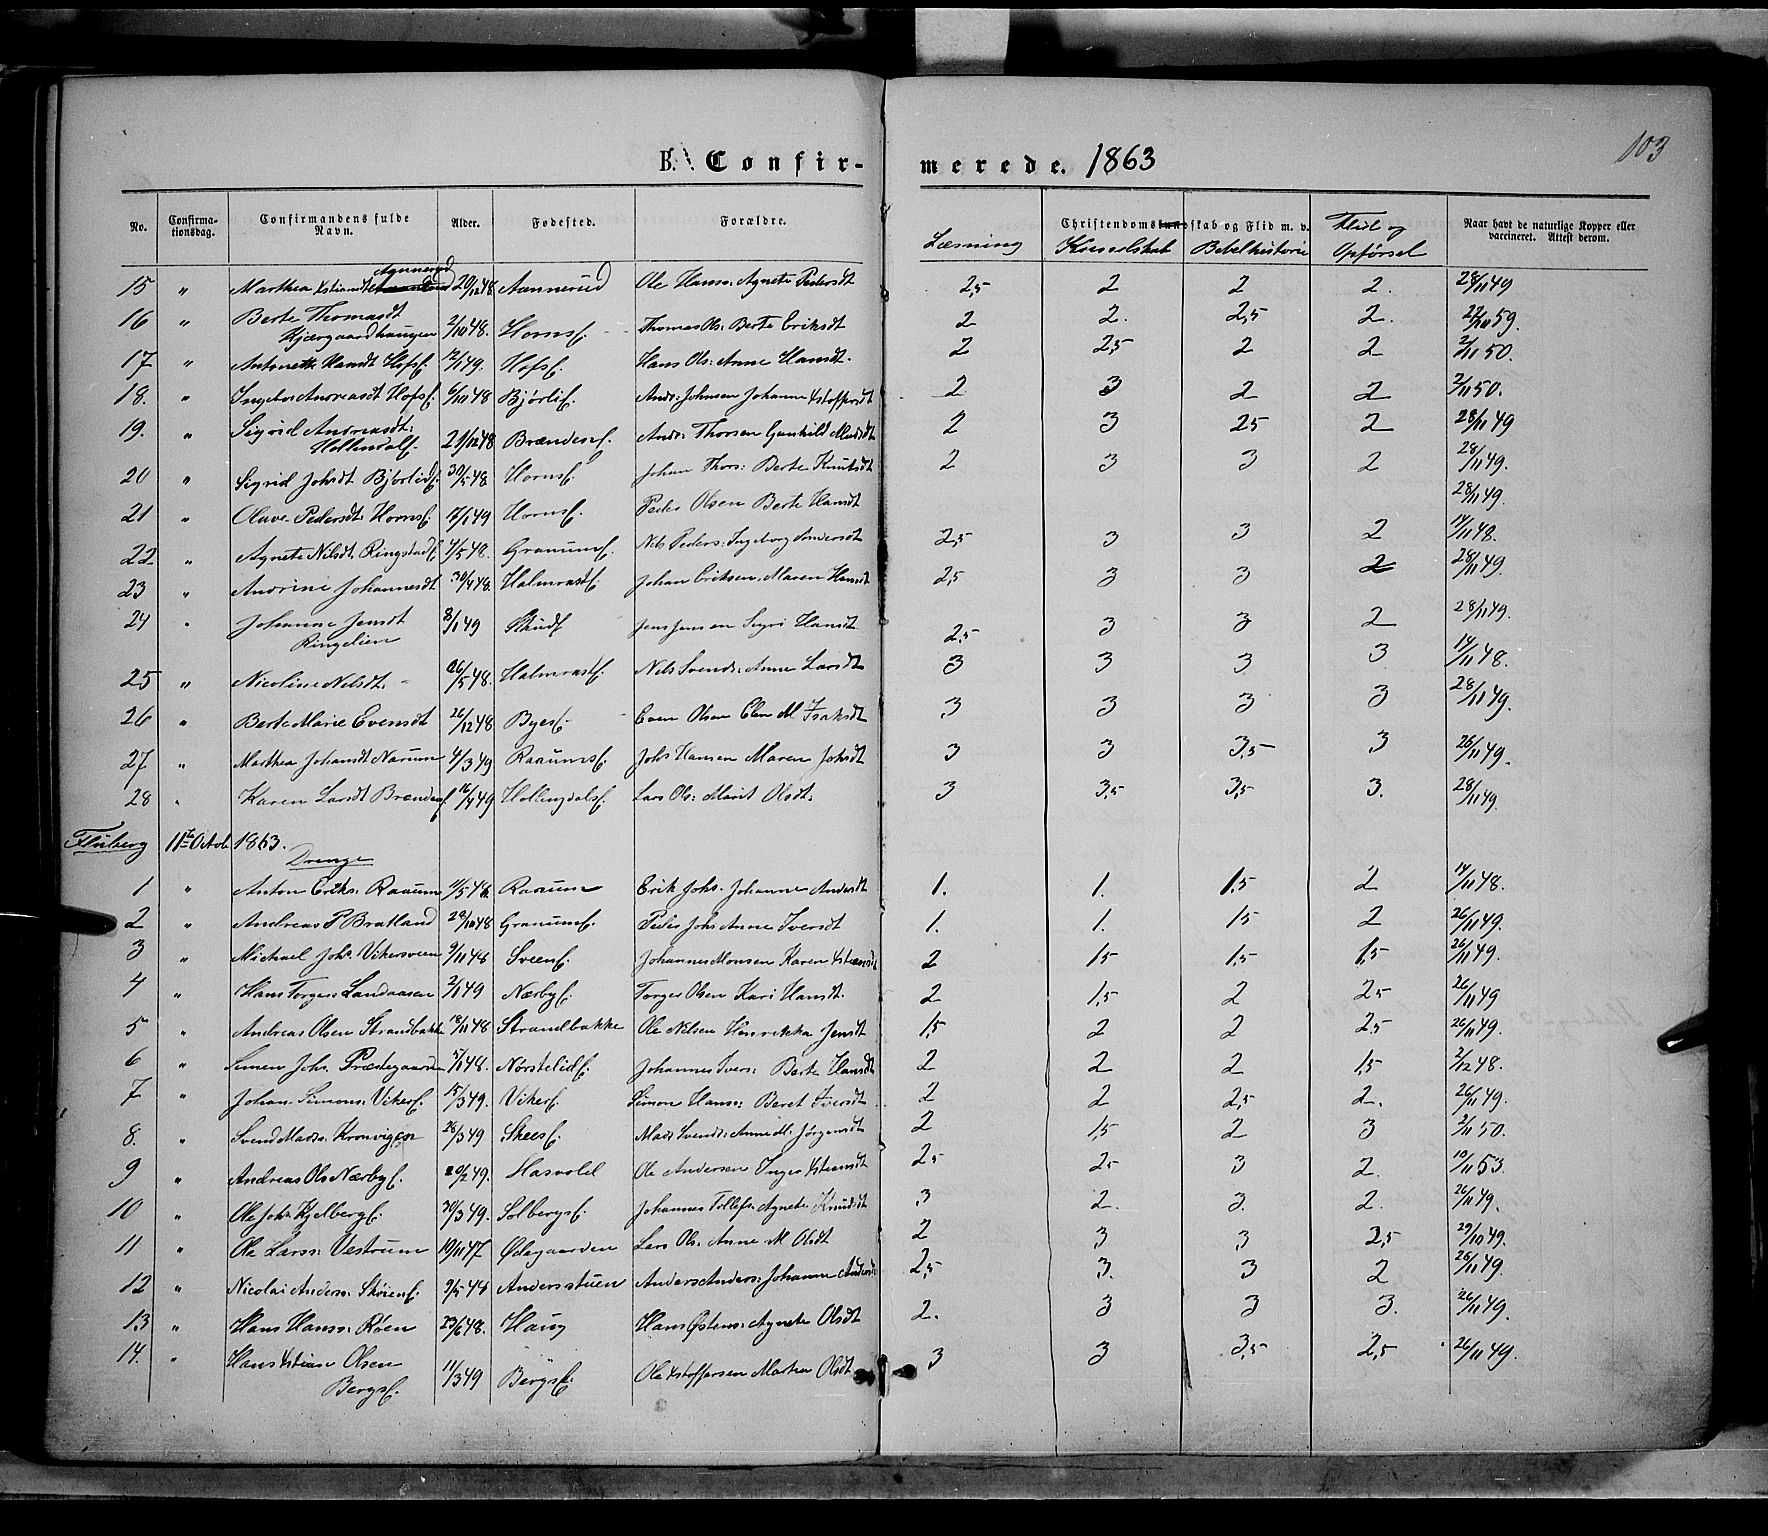 103
B. Confirmerede. 1863
No. Confirmationsdag. Confirmandens fulde Navn. Alder. Fødested. Forældre. Læsning Christendomskundskab og Flid m. v. Kundskab Bibelhistorie Flid og Opførsel Naar havt de naturlige Kopper eller vaccineret. Attest derom.
15 " Marthea Xstiansdt Aannerud 20/12 48 Aannerud Ole Hanss: Agnete Pedersdt 2,5 2 2 2. 28/11 49
16 " Berte Thomasdt Kjærgaardhaugen 2/10 48. Hornsf. Thomas Ols: Berte Eriksdt 2 2. 2,5 2. 59.
17 " Antonette Hansdt Hofsf. 12/1 49. Hofsf. Hans Ols: Anne Hansdt. 2 2,5 2 2 2/11 50.
18. " Ingebor Andreasdt Hofsf. 6/10 48 Bjørlif. Ands: Johnsen Johanne Xstoffersdt 2 3 2 2 2/11 50.
19. " Sigrid Andreasdt: 21/12 48 Brændesf. Ands: Thorsen Gunhild Madsdt 2 3 25 2 28/11 49
20 " Sigrid Johsdt Bjørlief. 30/5 48 Hornsf. Johan Thors: Berte Knutsdt 2 3 3 2 28/11 49.
21 " Oluve Pedersdt: Hornsf. 17/1 49 Hornsf. Peder Olsen Berte Hansdt 28/11 49.
22 " Agnete Nilsdt. Ringstadf. 4/5 48. Granumf. Nils Peders: Ingeborg 2,5 3 3 2 14/11 48.
23 " Andrine Johannesdt 30/4 48. Halmrastf. Johan Eriksen. Maren Hansdt 2,5 3 3 2 28/11 49.
24 " Johanne Jensdt Ringelien 8/1 49 Skudf Jens Jensen Sigri Hansdt 2,5 3 3 2 28/11 49.
25 " Nicoline Nilsdt. 26/5 48. Halmrastf. Nils Svends: Anne Larsdt 3 3 3 3 14/11 48.
26 " Berte Marie Evensdt 26/12 48 Byesf Even Olsen Elen M. Isaksdt 3 3 3 3 28/11 49.
27 " Marthea Johansdt Narum 4/3 49 Raaumsf. Johs Hansen Maren Johsdt 3 3 3,5 3 26/11 49.
28 " Karen Larsdt Brendesf 16/4 49 Hollingdalsf. Lars Ols: Marit Olsdt: 3 3,5 3,5 3. 28/11 49.
Fluberg 11te Octob 1863.
Drenge
1 " Anton Eriks: Raaum 11/5 48. Raaum Erik Johs. Johanne Andersdt 1. 1. 1,5 2 14/11 48.
2 " Andreas P Bratland 28/10 48 Granumsf. Peder Johs Anne Iversdt 1. 1. 15 2 26/11 49.
3 " Michael Johs. Vikersveen 9/11 48 Sveenf. Johannes Monsen Karen Xstiansdt 2 15 1,5 1,5 26/11 49.
4 " Hans Torgers Landaasen 2/1 49 Nærbyf. Torger Olsen Kari Hansdt. 2 1,5 2 25 26/11 49
5 " Andreas Olsen Strandbakke 18/11 48 Strandbakke Ole Nilsen Henrikka Jensdt 1,5 2 2 2,5 26/11 49.
6 " Simen Johs. Prestegaarden 48. Nørstelidf. Johannes Ivers: Berte Hansdt 2 2 2 1,5 2/12 48.
7 " Johan Simons: Vikersf. 15/3 49. Vikersf. Simon Hans: Beret Iversdt 2 2 2,5 2. 26/11 49.
8. " Svend Mads: Kronvigen 28/3 49 Skeesf. Mads Svends: Anne M. Jørgensdt 2 1,5 2 3 2/11 50.
9 " Andreas Ols Nærbyf. 20/2 49. Hasvold Ole Andersen Inger Xstiansdt 25 25 3 2. 10/11 53.
10 " Ole Johs Kjelbergf. 30/3 49. Solbergsf. Johannes Tollefs: Agnete Knudsdt 3 2. 3. 2. 26/11 49.
11 " Ole Larss: Vestrum 19/11 47 Ødegaarden Lars Ols: Anne M. Olsdt 2 3 3 2,5 29/10 49.
12 " Nicolai Anders: Skøienf. 9/5 48 Andersstuen Anders Anders: Johanne Andersdt 2,5 3. 3 2 26/11 49.
13 " Hans Hanss: Røen 23/6 48. Haug Hans Østens: Agnete Olsdt 2. 3 3 3. 26/11 49.
14. " Hans Xstian Olsen Bergsf. 11/3 49 Bergsf. Ole Xstoffersen Marthea Olsdt 3 3 3,5 2,5 26/11 49.